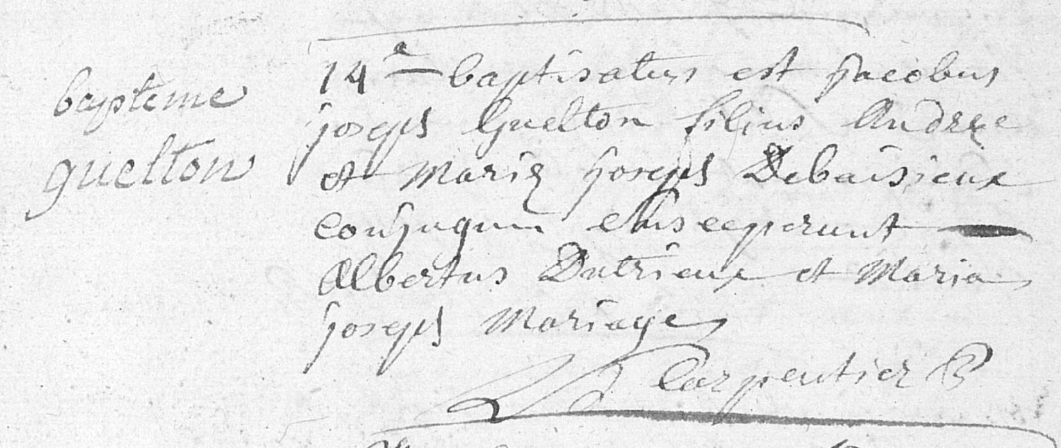 bapteme
guelton
14a baptisatus est Jacobus
joseph Guelton filius Andreæ
et Mariæ joseph Debaisieux
conjugum susceperunt
Albertus Dutrieux et Maria
joseph Mariage
Carpentier